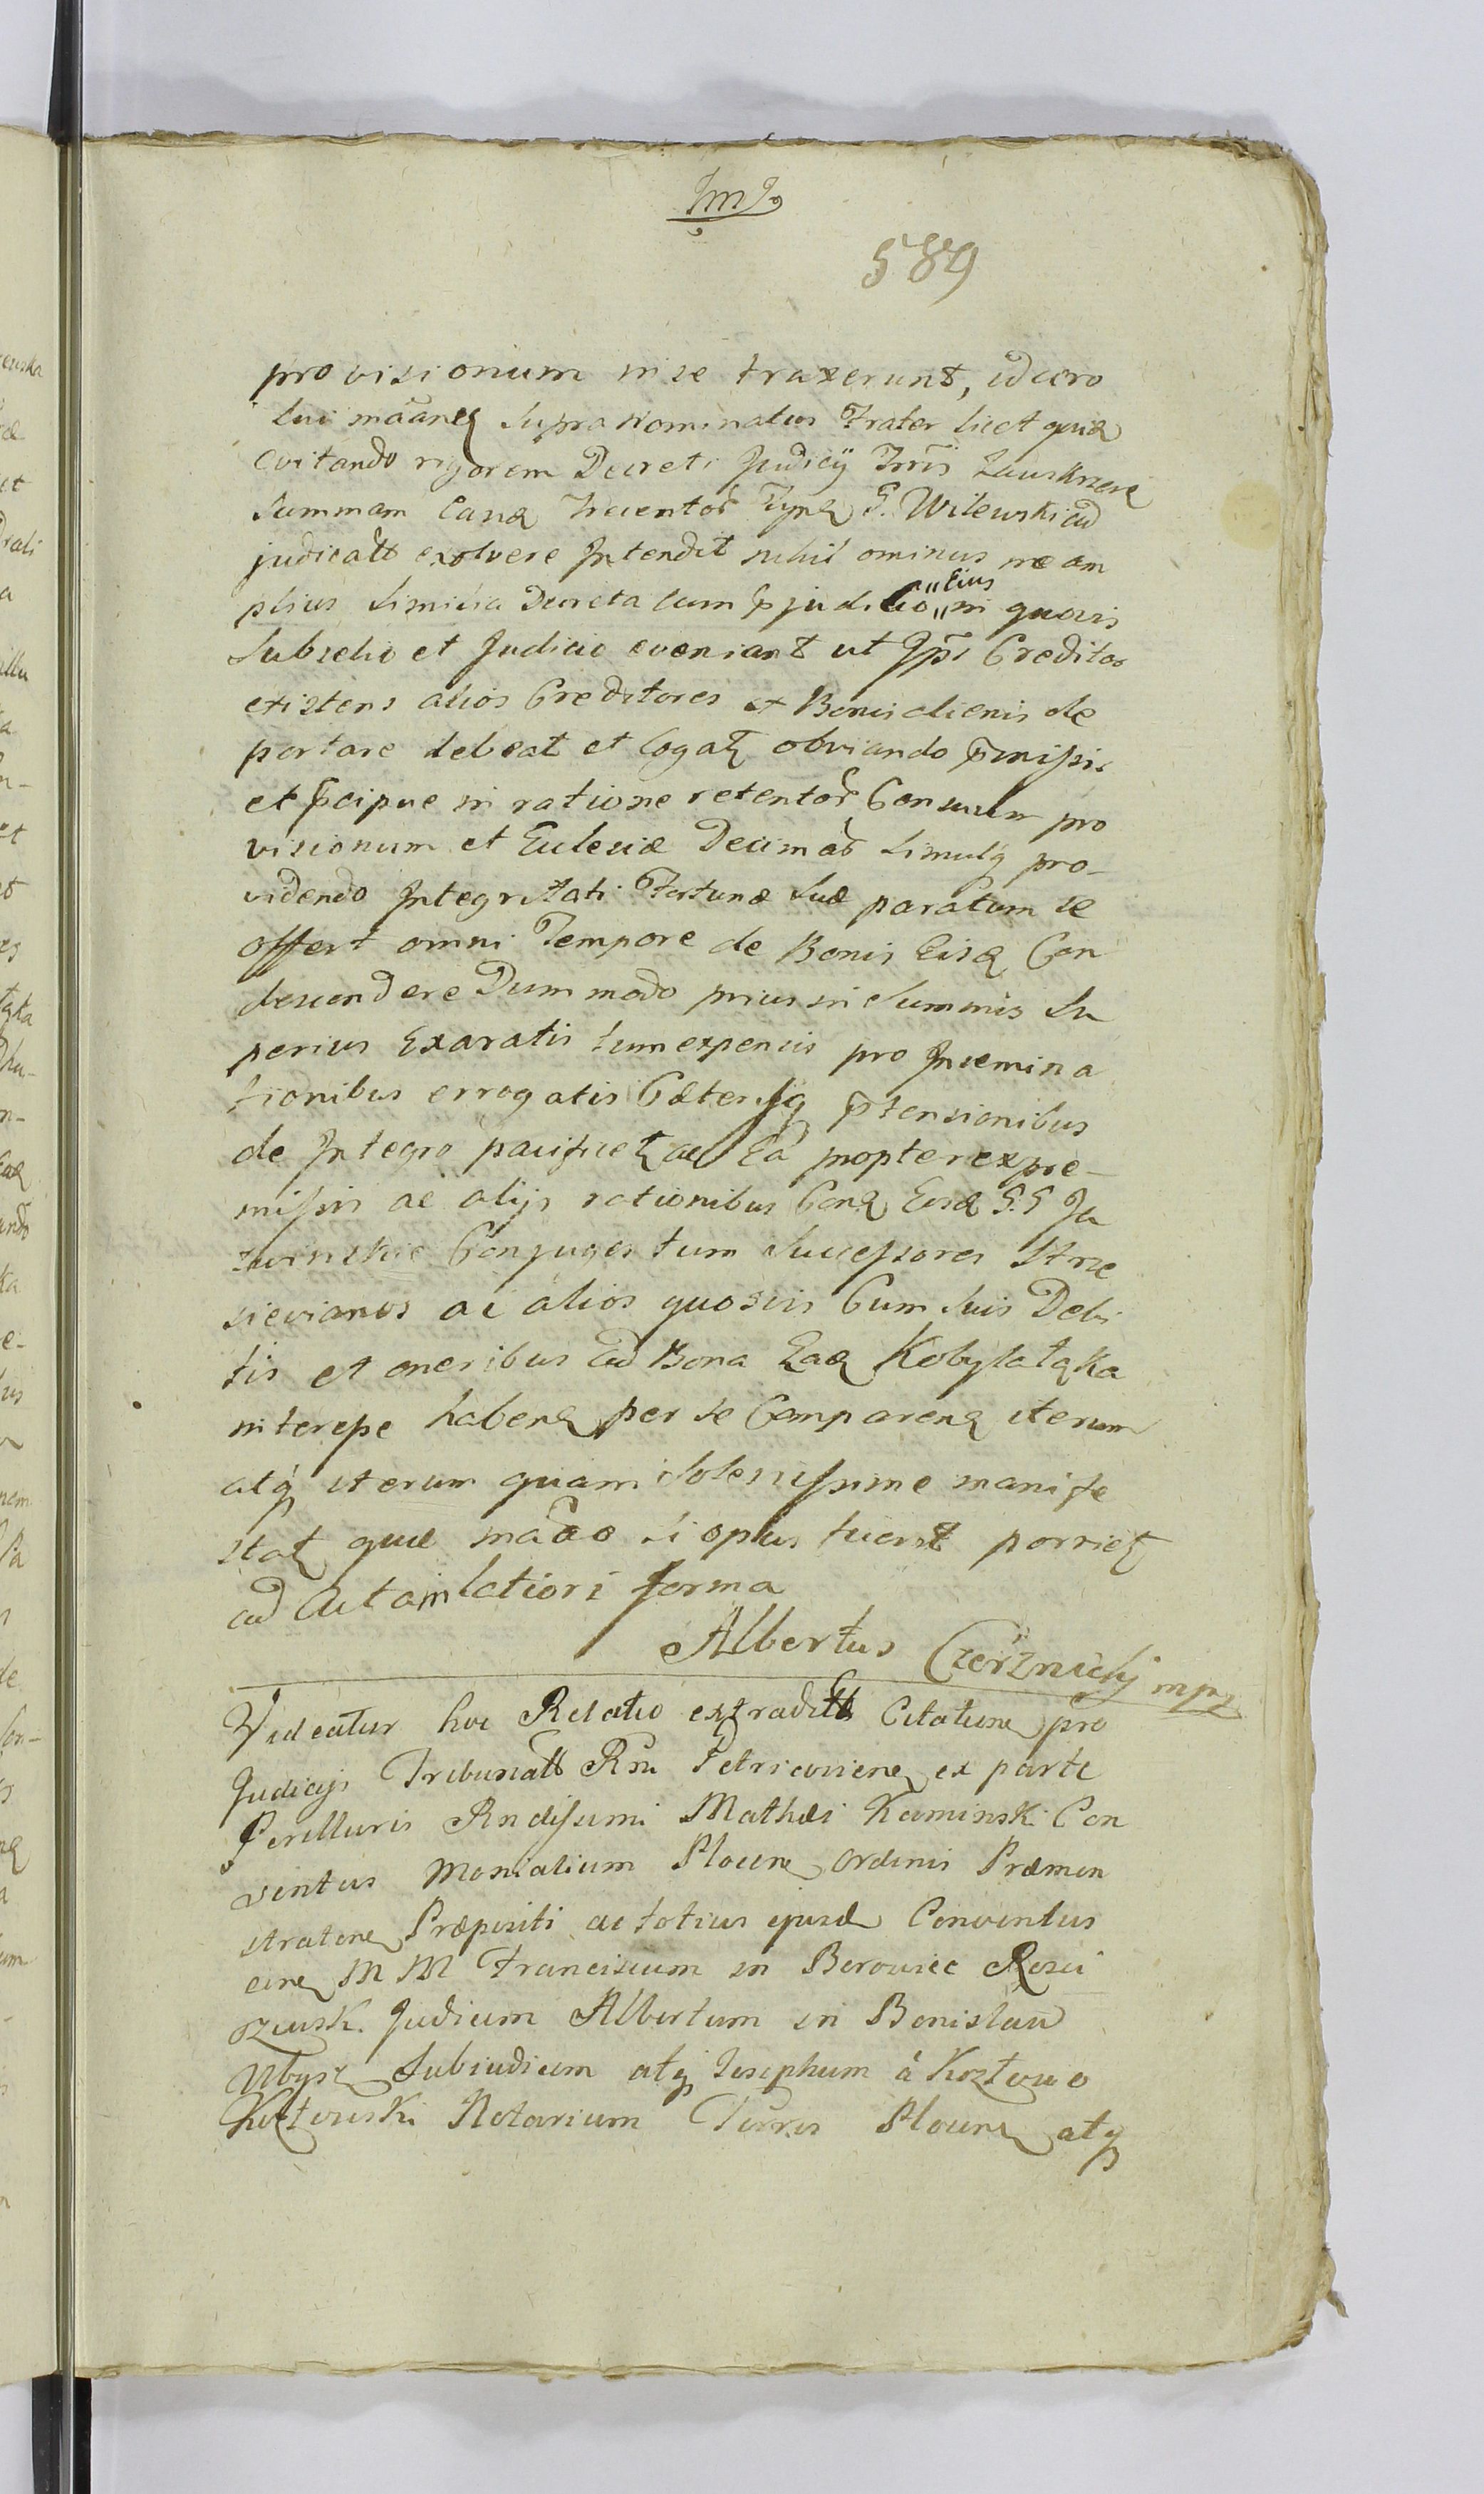 589
provisionum in se traxerunt, idcirco
supranominatus Frater licet
evitando rigorem Decreti Judicij
Summam G. Wilewski ad
judicatt exolvere Intendit nihil ominus ne am
plius similia Decreta cum ꝑjudicio Eius in quovis
Subselio et Judicio eveniant ut Ipse Creditor
existens alios Creditores ex Bonis alienis de
portare debeat et Cogat obviando p̄missis
et p̄cipue in ratione retentor Censuum pro
visionum et Eclesiæ Decimar simulq pro-
videndo Integritati Fortunæ suæ paratum se
offert omni Tempore de Bonis Eisd Con
descendere Dummodo prius in Summis su
perius Exaratis tum expensis pro Insemina
tionibus errogatis Cæterisq p̄tensionibus
de Integro pacificet ac Ea propter ex pre-
missis ac alijs rationibus Con Eosd G.G
Conjuges tum Successores Strze
sievianos ac alios quosvis Cum suis Debi
tis et oneribus ad Bona Ead Kobylałąka
interesse haben per se Comparen iterum
atq iterum quam solenissime manife
stat quæ mado si opus fuerit porriet
ad Acta in latiori forma
Albertus Czerznicky mpz
Videatur hoc Relatio extradit Citatione pro
Judicijs Tribunatt Rni Petricovien ex parte
Perillustris Rndissimi Mathæi Kaminski Con
ventus Monialium Plocen ordinis Præmon
straten Præpositi ac totius ejusd Conventus
cone M M Franciscum in Borowice Rosci
szewsk. Judicem Albertum in Bonisław
Mbysz Subiudicem atq Josephum à Kozłowo
Kozłowski Notarium Terrs Plocen atq